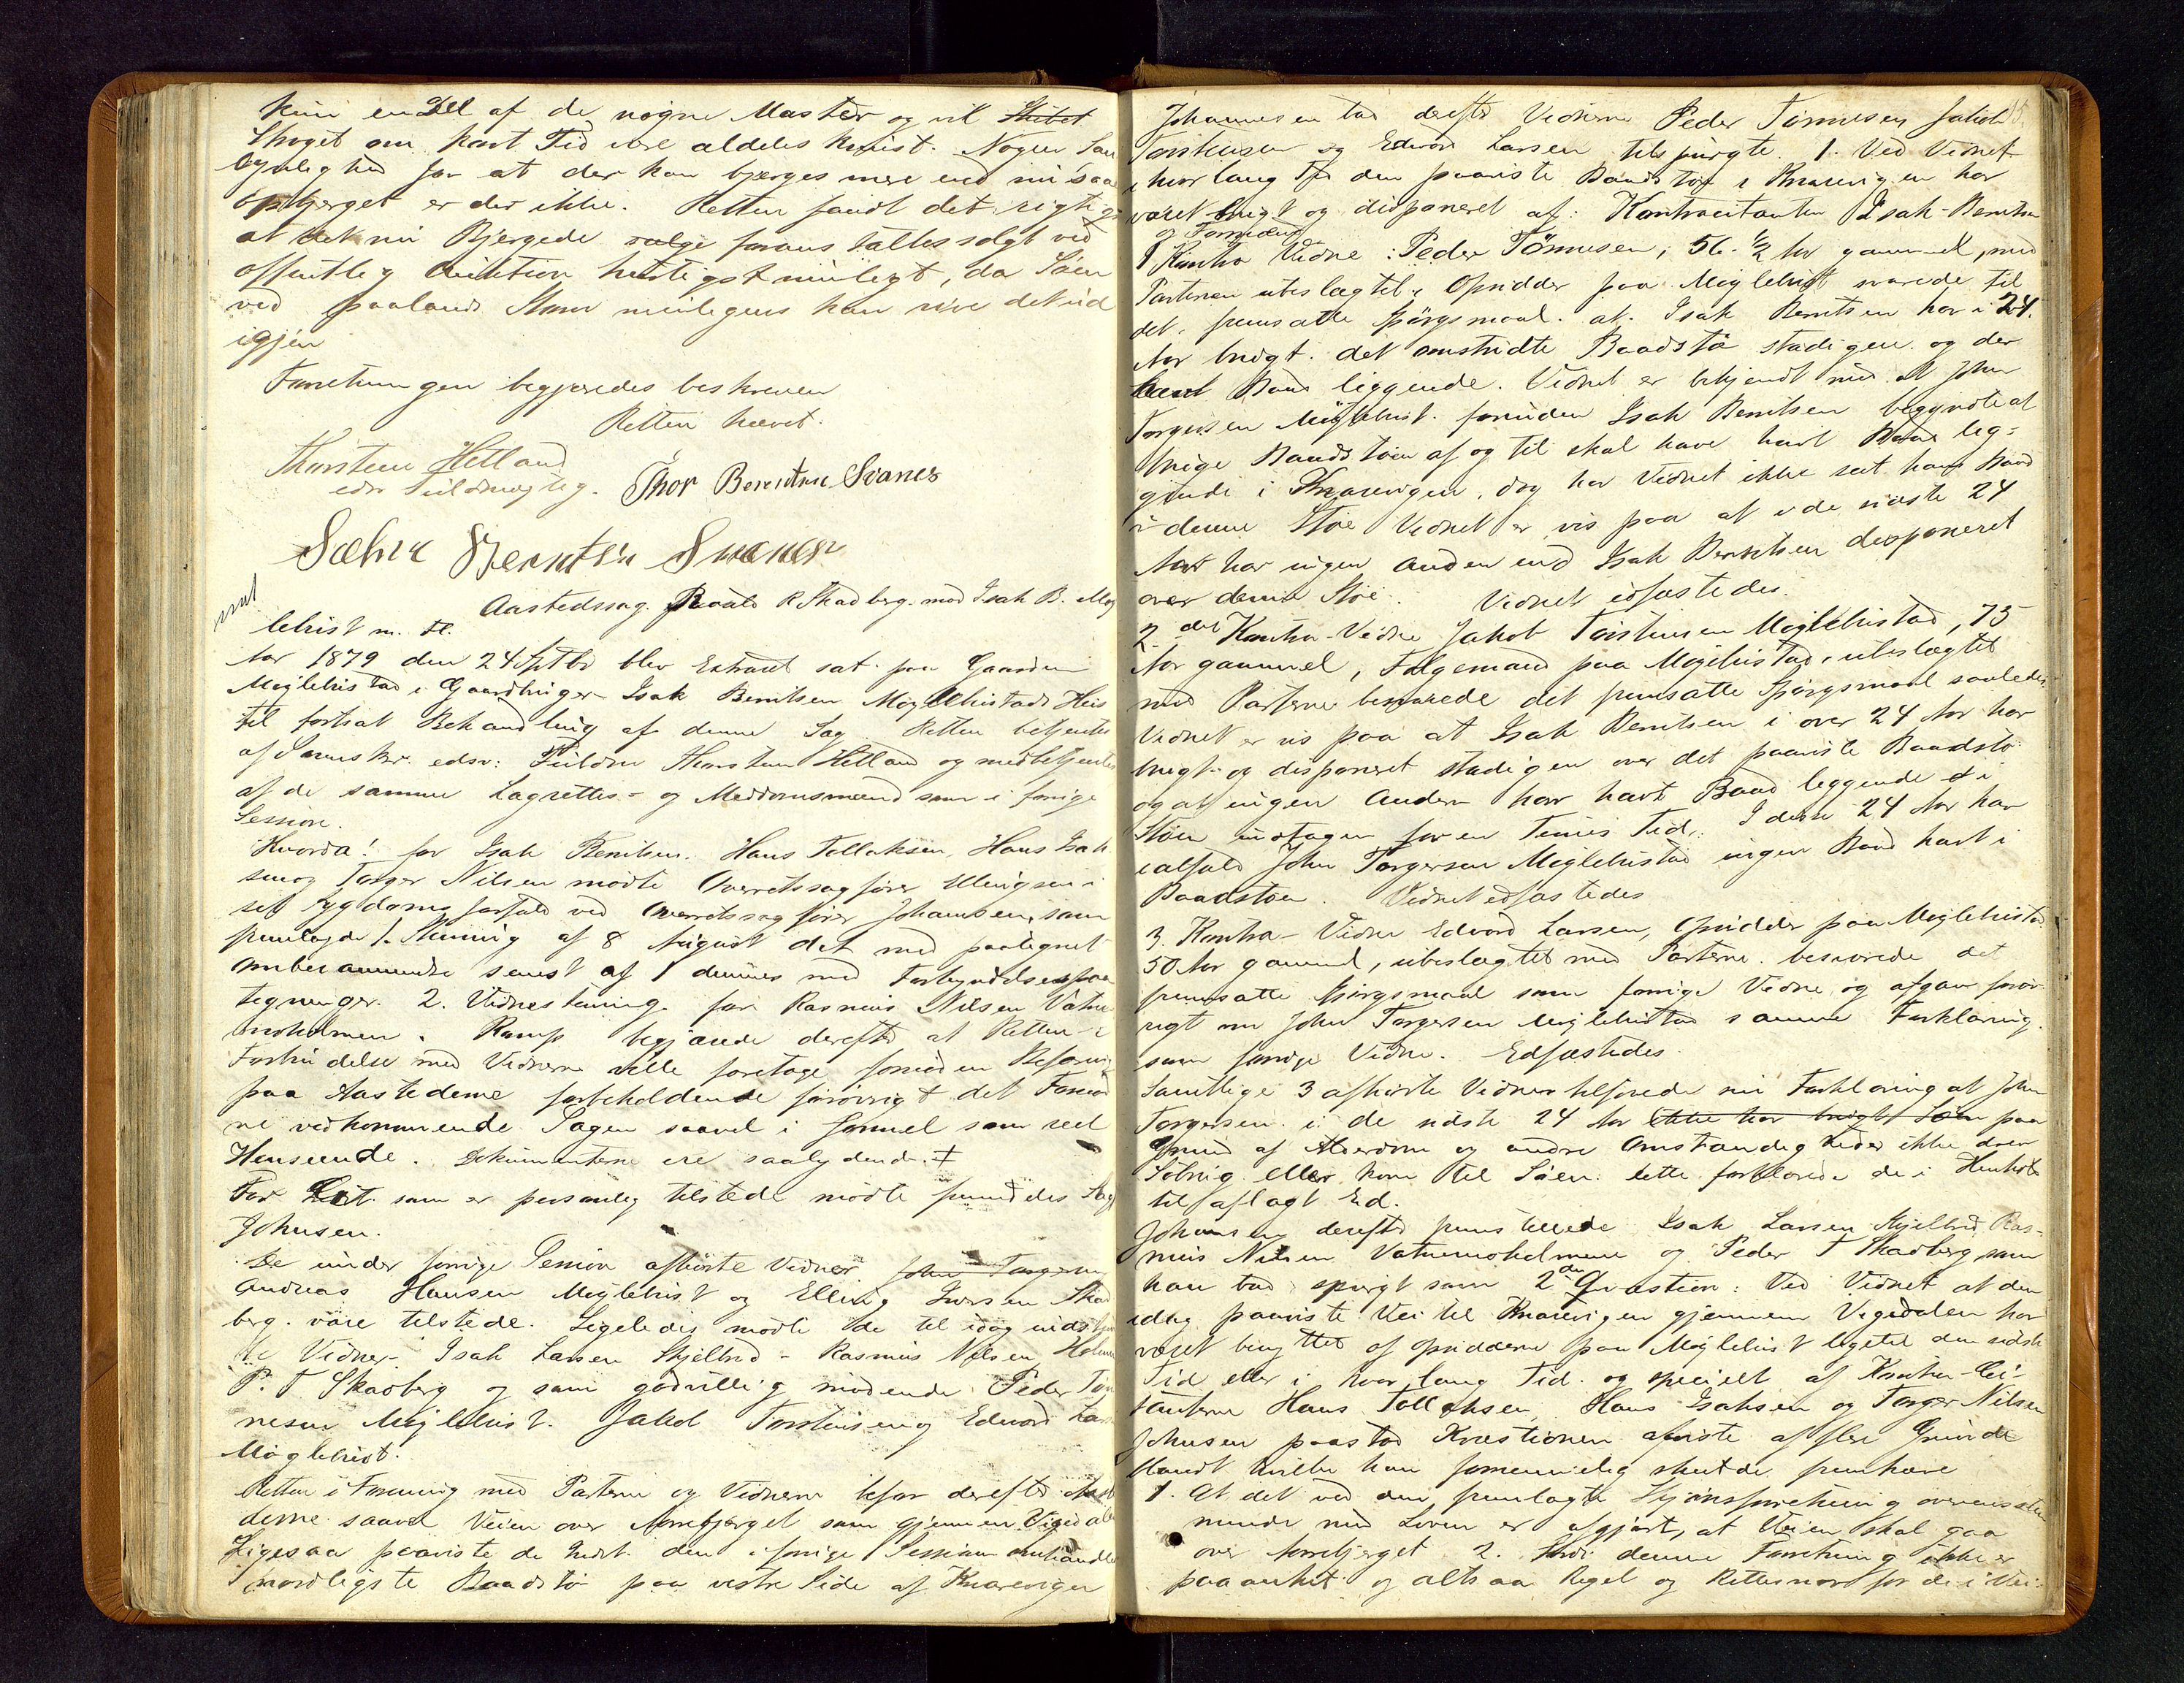 kun en Del af de nøgne Master og vil Skibet
Skroget om kort Tid være aldeles knust. Nogen San
synlighed for at der kan bjerges mere end nu saa
opbjerget er der ikke. Retten fandt det rigtigt
at det nu Bjergede sælges foranstaltes solgt ved
offentlig Auktion hurtigst muligt, da Søen
ved paalands Storm muligens kan rive det ud
igjen
Forretningen begjæredes beskreven
Retten hævet.
Thorsten Hetland
edsv Fuldmægtig. Thor Berentsen Svanes
Sælve Berntsen Svanes
Aastedssag. Roald R Skadberg mod Isak B. Møg
lebust m. fl.
Aar 1879 den 24 Septbr blev Extraret sat paa Gaarden
Møglebustad i Gaardbruger Isak Berntsen Møglebustads Hus
til fortsat Behandling af denne Sag. Retten betjentes
af Sorenskr. edsv: Fuldm Thorsten Hetland og medbetjentes
af de samme Lagrettes- og Meddomsmænd som i forrige
Session.
Hvorda! for Isak Berntsen. Hans Tollaksen, Hans Isak
sen og Torger Nilsen mødte Overretssagfører Ellingsen i
set Sygdoms forfald ved Overretssagfører Johansen, som
fremlagde 1. Stevning af 8 August det med paategnet
omberammelse senest af 1 dennes med Forkyndelsespaa
tegninger. 2. Vidnestevning for Rasmus Nilsen Vatne
moholmen. Komp begjærede derefter at Retten i
Forbindelse med Vidnerne ville foretage fornøden Befaring
paa Aastederne forbeholdende forøvrigt det Fornød
ne vedkommende Sagen saavel i formel som reel
Henseende. Dokumenterne ere saalydende. ‡
For Cit. som er personlig tilstede mødte fremdeles Sagf
Johnsen.
De under forrige Session afhørte Vidner John Torgersen
Andreas Hansen Møglebust og Elling Iversen Skad
berg. vare tilstede. Ligeledes mødte de til idag inds
te Vidner Isak Larsen Skjelbred - Rasmus Nilsen Holmen
P. T Skadberg og som godvillig mødende Peder Tøn
nesen Møglebust. Jakob Torstensen og Edvard Lars
Møglebust.
Retten i Forening med Parterne og Vidnerne befor derefter Aast
derne saavel Veien over Nonebjerget som gjennem Vigedalen
Ligesaa paaviste de Indst. den i forrige Session omhandlede
nordligste Baadstø paa vestre Side af Knarevigen
Johannesen lod derefter Vidnerne Peder Tønnesen Jakob
Torstensen og Edvard Larsen tilspørgte 1. Ved Vidnet
i hvor lang Tid den paaviste Baadstø i Knarevigen har
været brugt og disponeret af: Kontracitanten Isak Berntsen
og Formænd
1 Kontra Vidne: Peder Tönnesen, 56. ½ Aar gammel, med
Parterne ubeslægtet, Opsidder paa Møglebust svarede til
det fremsatte Spørgsmaal. at Isak Berntsen har i 24.
Aar brugt det omstridte Baadstø stadigen og der
havt Baad liggende. Vidnet er bekjendt med at John
Torgersen Møglebust. forinden Isak Berntsen begyndte at
bruge Baadstøen af og til skal have havt Baad lig-
gende i Knarevigen, dog har Vidnet ikke set hans Baad
i denne Støe Vidnet er vis paa at i de sidste 24
Aar har ingen anden end Isak Berntsen disponeret
over denne Støe. Vidnet edfæstedes.
2. det Kontra-Vidne Jakob Torstensen Møglebustad, 75
Aar gammel, Følgemand paa Møglebustad, ubeslægtet
med Parterne besvarede det fremsatte Spørgsmaal saaledes
Vidnet er vis paa at Isak Berntsen i over 24 Aar har
brugt og disponeret stadigen over det paaviste Baadstø
og at ingen Anden har havt Baad liggende i
Støen undtagen for en Times Tid. I disse 24 Aar har
ialfald John Torgersen Møglebustad ingen Baad havt i
Baadstøen. Vidnet edfæstedes
3. Kontra-Vidne Edvard Larsen, Opsidder paa Møglebustad
50 Aar gammel, ubeslægtet med Parterne. besvarede det
fremsatte Spørgsmaal som forrige Vidne og afgav forøv
rigt om John Torgersen Møglebustad samme Forklaring
som forrige Vidne. Edfæstedes.
Samtlige 3 afhørte Vidner tilføiede nu Forklaring at John
Torgersen i de sidste 24 Aar ikke har brugt Søen paa
Grund af Alderdom og andre Omstændigheder ikke drev
Søbrug eller kom til Søen. Dette forklarede de i Henhold
til aflagt Ed.
Johansen derefter fremstillede Isak Larsen Skjelbred Ras-
mus Nilsen Vatnemoholmen og Peder T Skadberg som
han bad spurgt som 2den Qvæstion: Ved Vidnet at den
idag paaviste Vei til Knarevigen gjennem Vigedalen har
været benyttet af Opsidderne paa Møglebust ligetil den sidste
Tid eller i hvor lang Tid. og specielt af Kontra-Ci-
tanterne Hans Tollaksen, Hans Isaksen og Torger Nilsen
Johnsen paastod Kvæstionen afviste af flere Grunde
blandt hvilke han fornemmelig skulde fremhæve
1. At det ved den fremlagte Skjønsforretning overensstem
mende med Loven er afgjort, at Veien skal gaa
over Nonebjerget 2. fordi denne Forretning ikke er
paaanket og altsaa Regel og Rettesnor for de i Vei-